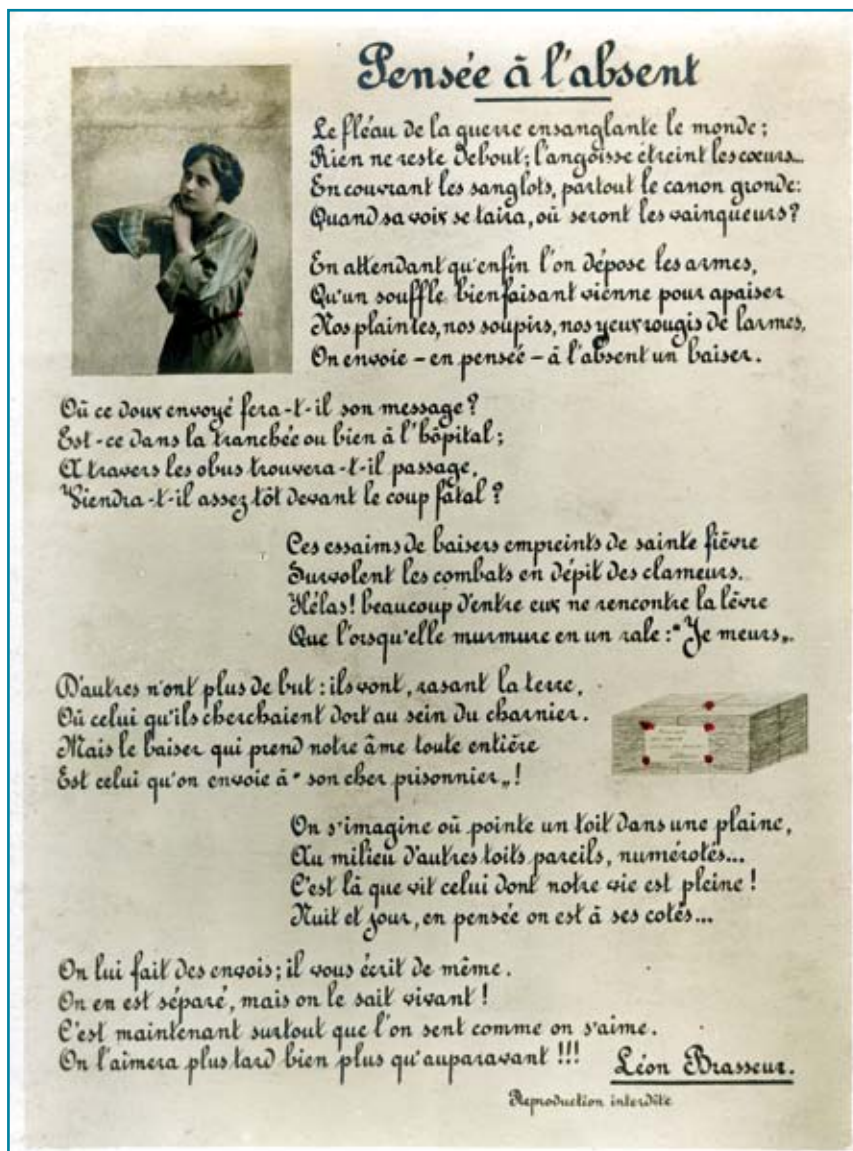 Pensée à l'absent
Le fléau de la guerre ensanglante le monde ;
Rien ne reste debout ; l'angoisse étreint les cœurs...
En couvrant les sanglots, partout le canon gronde :
Quand sa voix se taira, où seront les vainqueurs ?
En attendant qu'enfin l'on dépose les armes,
Qu'un souffle bienfaisant vienne pour apaiser
Nos plaintes, nos soupirs, nos yeux rougis de larmes,
On envoie - en pensée - à l'absent un baiser.
Où ce doux envoyé fera-t-il son message ?
Est-ce dans la tranchée ou bien à l'hôpital ;
A travers les obus trouvera-t-il passage,
Viendra-t-il assez tôt devant le coup fatal ?
Ces essaims de baisers empreints de sainte fièvre
Survolent les combats en dépit des clameurs.
Hélas ! beaucoup d'entre eux ne rencontre la lèvre
Que l'orsqu'elle murmure en un rale : "Je meurs„.
D'autres n'ont plus de but : ils vont, rasant la terre,
Où celui qu'ils cherchaient dort au sein du charnier.
Mais le baiser qui prend notre âme toute entière
Est celui qu'on envoie à "son cher prisonnier„ !
On s'imagine où pointe un toit dans une plaine,
Au milieu d'autres toits pareils, numérotés...
C'est là que vit celui dont notre vie est pleine !
Nuit et jour, en pensée on est à ses cotés...
On lui fait des envois ; il vous écrit de même.
On en est séparé, mais on le sait vivant !
C'est maintenant surtout que l'on sent comme on s'aime.
On l'aimera plus tard bien plus qu'auparavant !!!
Léon Brasseur.
Reproduction interdite